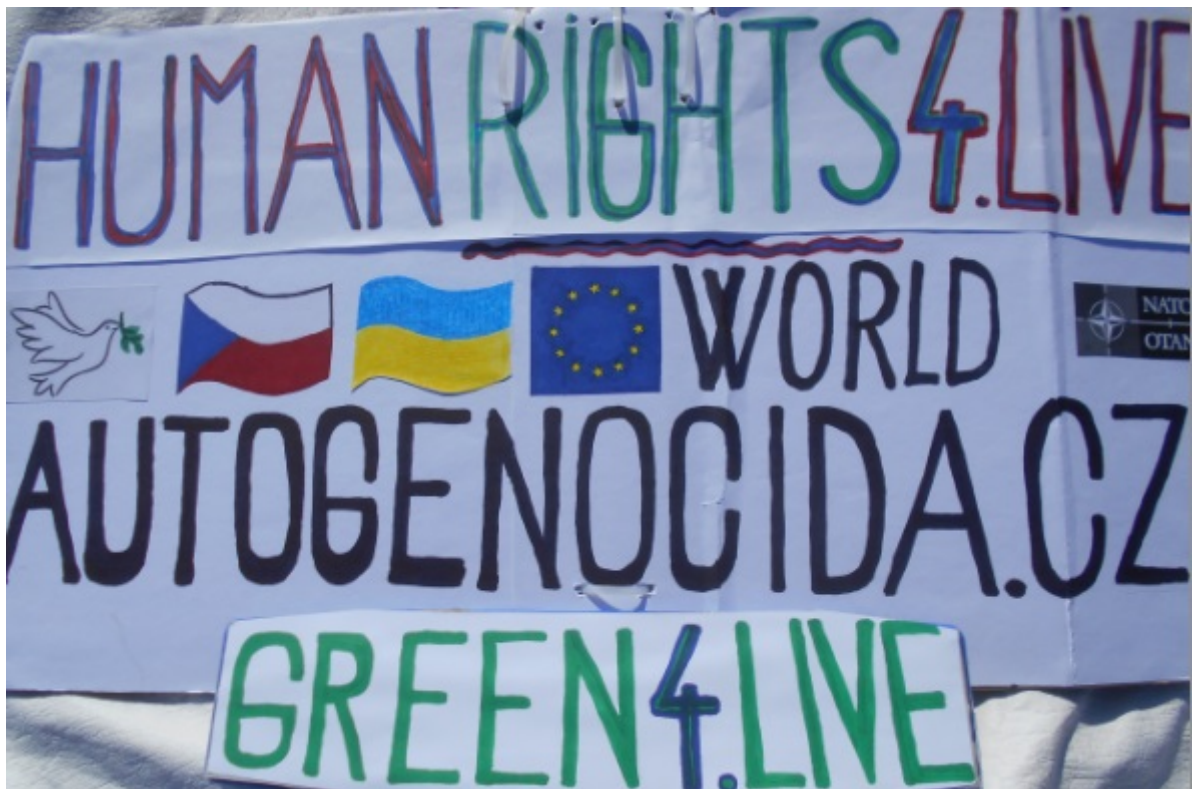 HUMAN RIGHTS4.LIVE
WORLD
NATO
OTAN
AUTOGENOCIDA.CZ
GREEN4.LIVE